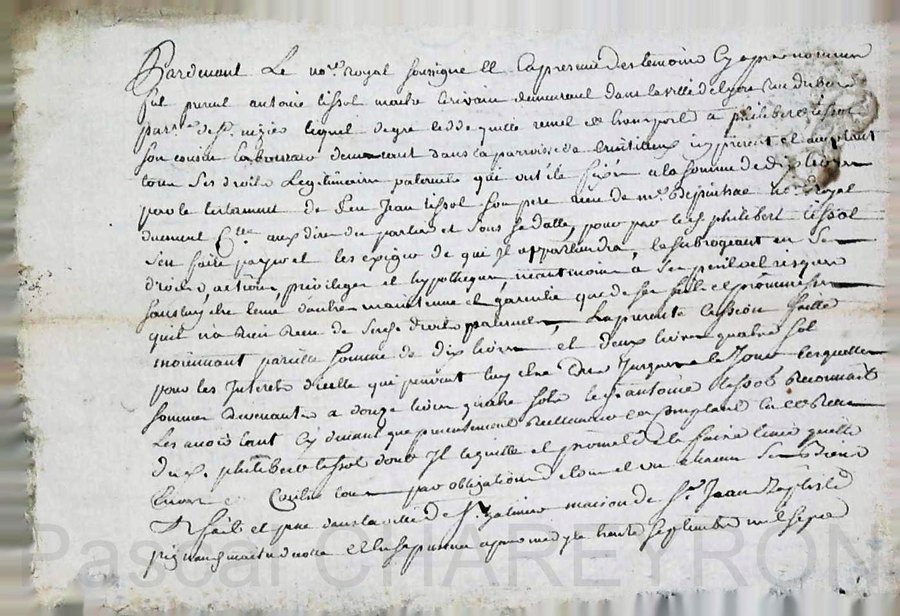 Pardevant Le no.re royal soussigné et En presence des temoins Cy apres nommes
fut present antoine tissot maitre Ecrivain demeurant dans la ville de Lyon rue
par.sse de St. nizier lequel de gré cedde quitte remet et transporte a philibert tissot
son cousin laboureur demeurant dans la paroisse de present et acceptant
tous ses droits Legitimaires paternels qui ont été fixés a la somme de dix livres
par le testament de feu Jean tissot son pere receu de m.e Depinhac no.re royal
duement C.llé aux dire des parties et sous sa datte, pour par led. philibert tissot
s'en faire payer et les exiger de qui Il appartiendra, le subrogeant en ses
droits actions privileges et hypotheques, neantmoins à ses perils et risques
sans luy etre tenu d'autre maintenue et garentie que de ses faits et promesses
qu'il n'a rien receu de sesd. droits paternels, La presente Cession faitte
moiennant pareille somme de dix livres et deux livres quatre sols
pour les Interets d'icelle qui peuvent luy etre dûs Jusques a ce Jour lesquelles
sommes revenantes a douze livres quatre sols led. s.r antoine tissot Reconnait
Les avoir tant Cy devant que presentement Reellement en Comptant Eu et Receu
dud. philibert tissot dont Il le quitte et promet de le faire tenir quitte
Envers et Contre tous par obligation de tous et un chacun ses Biens
fait et passé dans la ville de St. galmier maison de S.r Jean Baptiste
maitre et apres midy le trente septembre mil sept
Pascal CHAREYRON